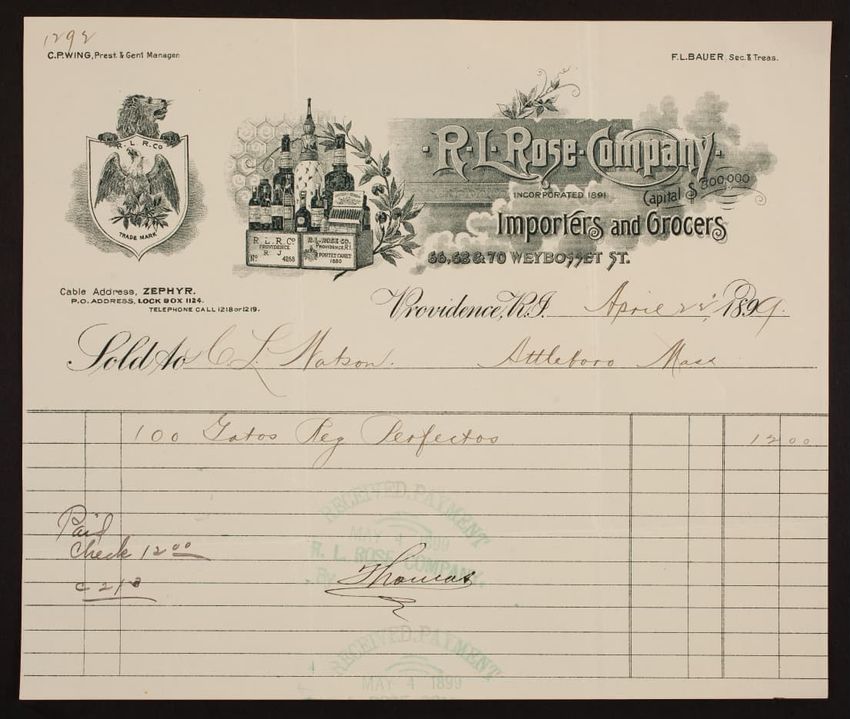 1292
C.P.WING, Prest. & Genl Manager.
F.L.BAUER, Sec. & Treas.
R. L. R. Co
TRADE MARK
R. L. R. Co
PROVIDENCE
R. I.
No 4268
R. L. ROSE CO.
PROVIDENCE R I
PONTET CANET
1880
R. L. Rose Company
INCORPORATED 1891
Capital $300,000
Importers and Grocers
66, 68 & 70 WEYBOSSET ST.
Cable Address, ZEPHYR.
P.O. ADDRESS, LOCK BOX 1124.
TELEPHONE CALL 1218 or 1219.
Providence, R.I. April 22 1899.
Sold to C L Watson. Attleboro Mass
100 Gatos Reg Perfectos 12 00
RECEIVED PAYMENT
MAY 4 1899
R. L. ROSE COMPANY.
By Thomas
Paid
Check 12 00
RECEIVED PAYMENT
MAY 4 1899